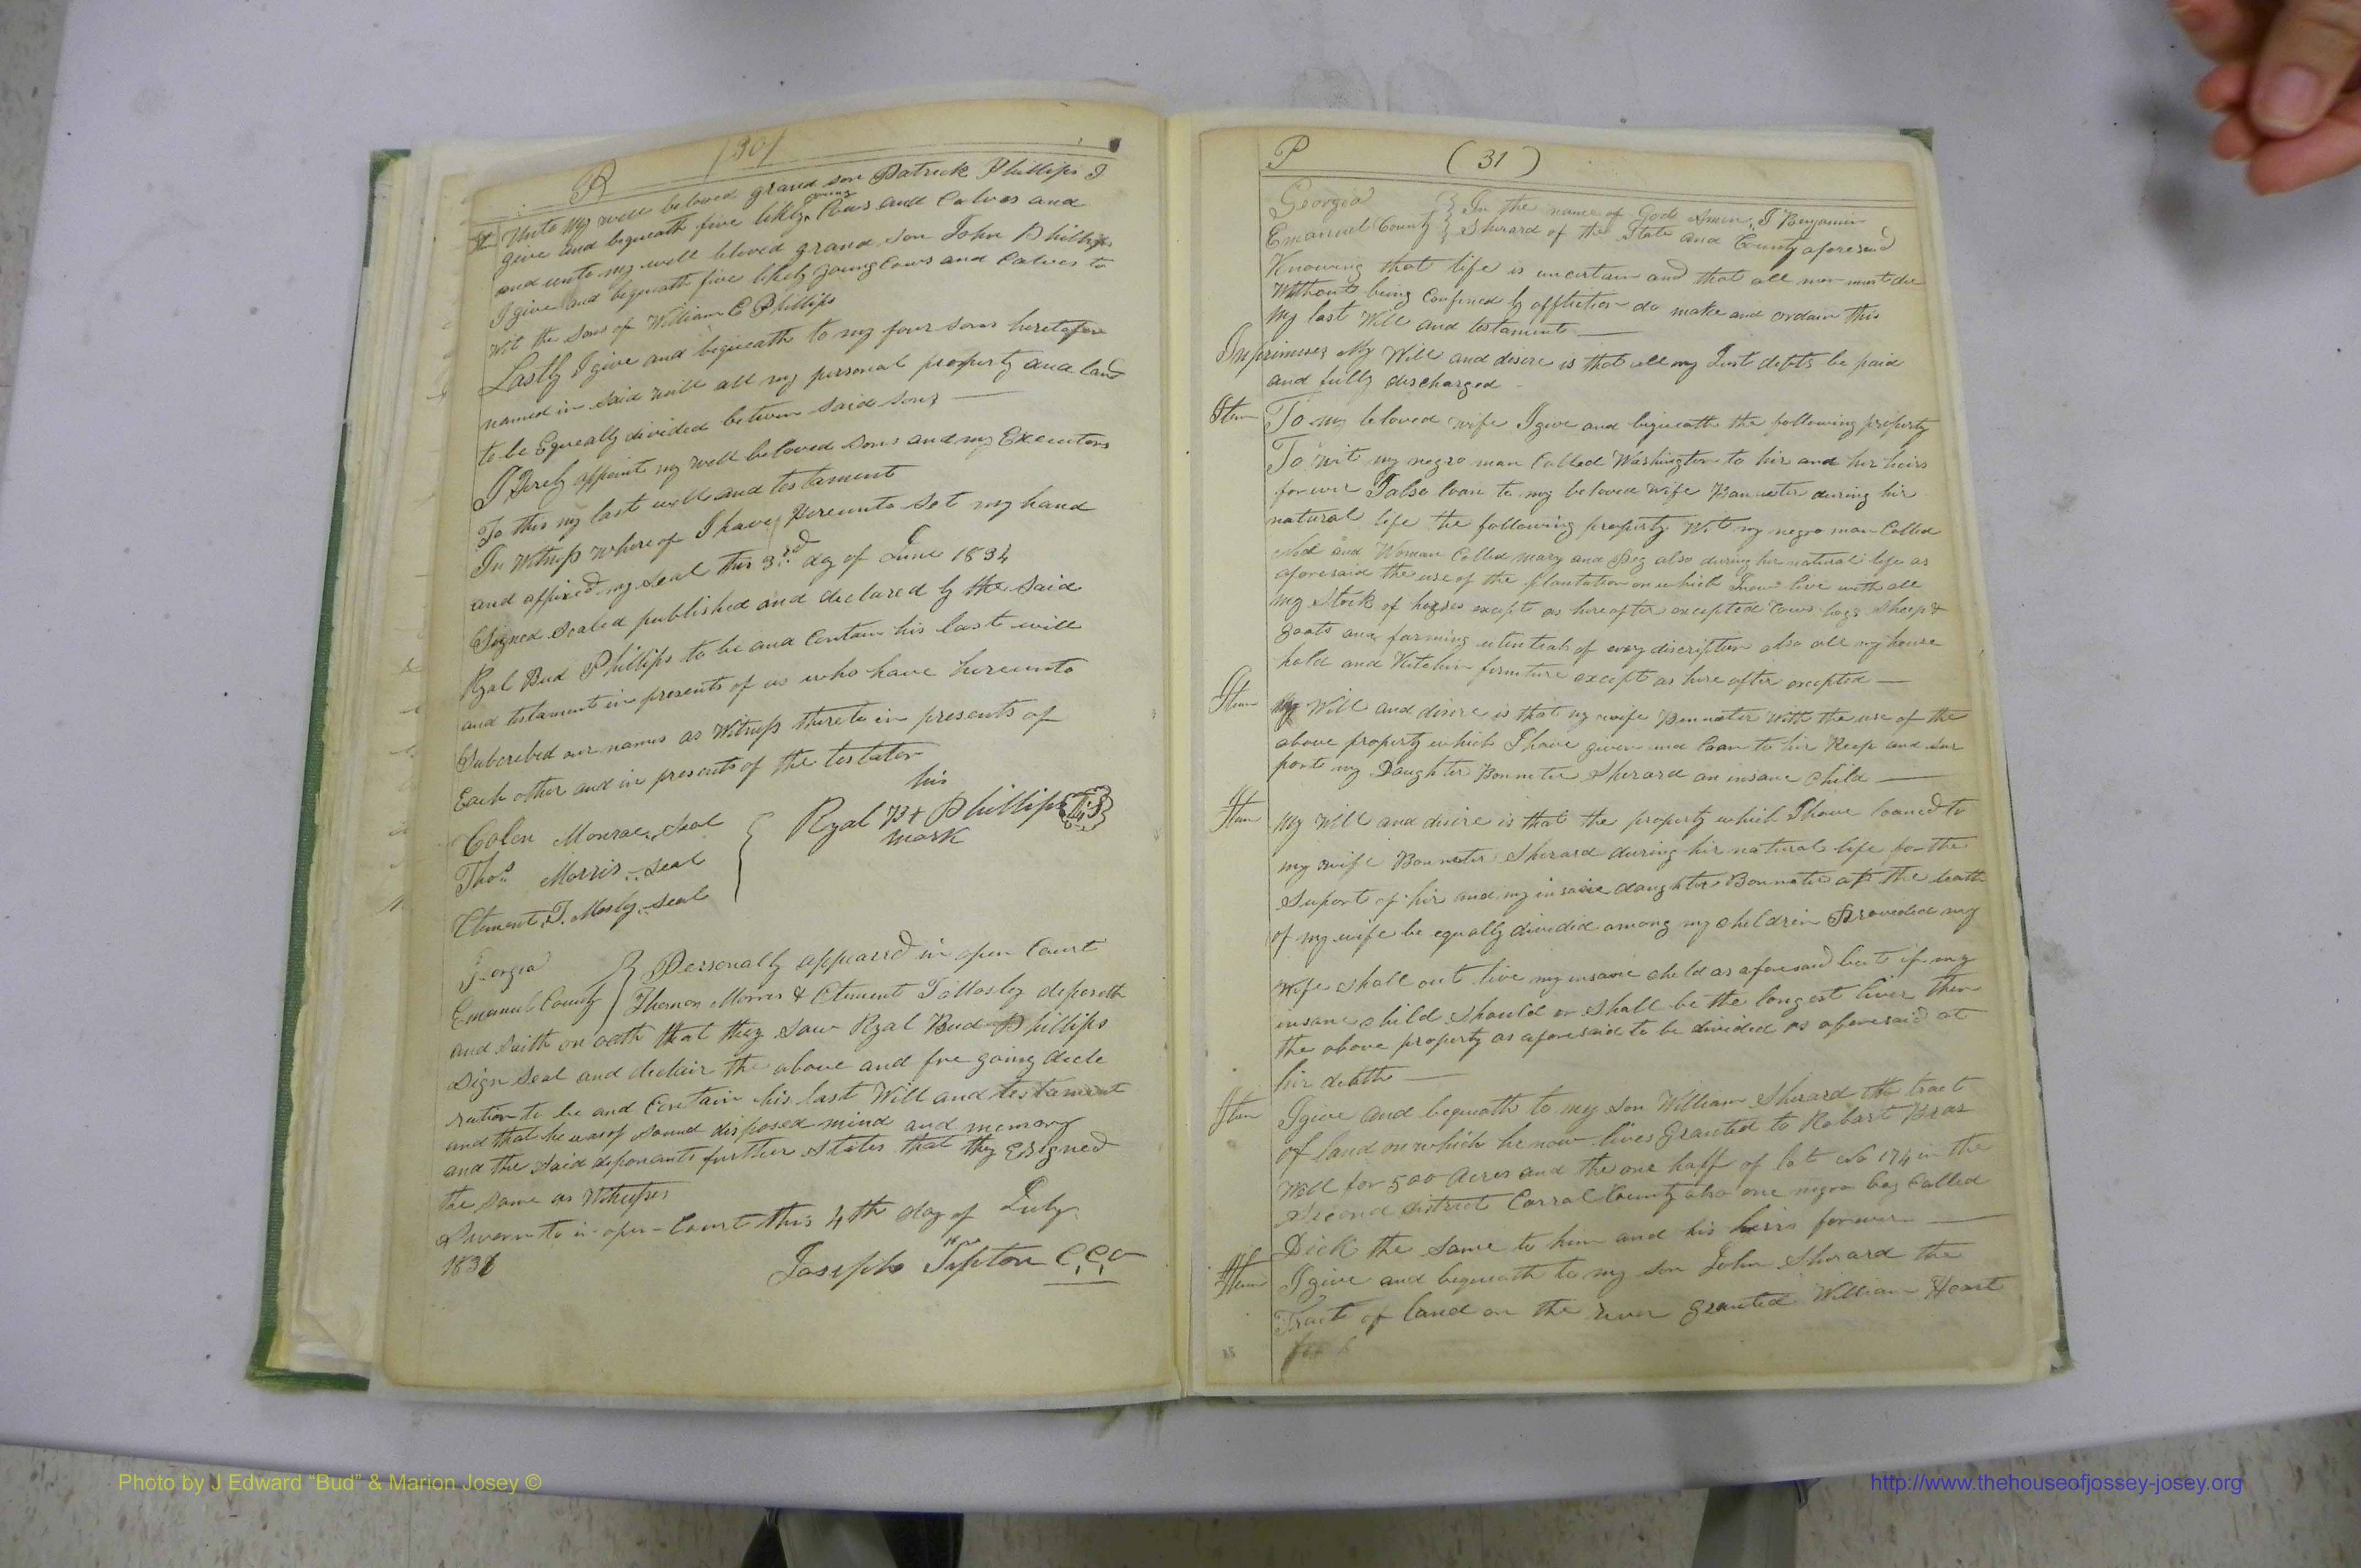 R (30)
It Unto my well beloved grand son Patrick Phillips I
give and bequeath five likely young Cows and Calves and
and unto my well beloved grand son John Phillips
I give and bequeath five likely young Cows and Calves to
wit the sons of William C Phillips
Lastly I give and bequeath to my four sons heretofore
named in said will all my personal property and land
to be Equeally divided between said sons
I Hereby appoint my well beloved sons and my Executors
To this my last will and testament
In Witness whereof I have Hereunto set my hand
and affixed my seal this 3rd day of June 1834
Signed Sealed published and declared by the said
Ryal Bud Phillips to be and Contain his last will
and testament in presents of us who have hereunto
Subcrebed our names as Witness thereto in presents of
Each other and in presents of the testator
Colen Monroe, Seal
Thos. Morris, Seal
Clement T. Mosley, Seal
his
Ryal B+ Phillips L.S
mark
Georgia
Emanuel County
Personally appeared in open Court
Thomas Morris & Clement T Mosley deposeth
and saith on oath that they saw Ryal Bud Phillips
sign seal and declair the above and fore going decle
ration to be and Contain his last Will and testament
and that he was of sound disposed mind and memory
and the said deponants further states that they Esigned
the same as Witnesses
Sworn to in open Court this 4th day of July
183
Joseph Tipton C,C,O
P (31)
Georgia
Emanuel County
In the name of God Amen, I Benjamin
Sherard of the State and County aforesaid
Knowing that life is uncertain and that all men must die
Without being Confined by affliction do make and ordain this
my last Will and testament
Inprimises My Will and disire is that all my Just debts be paid
and fully discharged
Item To my beloved wife I give and bequeath the following property
To wit my negro man Called Washington to hir and her heirs
forever I also loan to my beloved wife Bannister during hir
natural life the following property Wit my negro man Called
Ned and Woman Called Mary and Peg also during her natural life as
aforesaid the use of the plantation on which I now live with all
my Stock of horses except as hereafter excepted Cows hogs Sheep &
goats and farming utentials of every discription also all my house
hold and Kitchin furniture except as here after excepted
Item My Will and disire is that my wife Bannister With the use of the
above property which I have given and loan to hir Keep and sur
port my Daughter Bonneter Sherard an insane Child
Item My Will and disire is that the property which I have loaned to
my wife Bonneter Sherard during hir natural life for the
Suport of hir and my insaie daughter Bonneter at the death
of my wife be equally divided among my children Proveded my
Wife shall out live my insaie child as aforesaid but if my
insane child should or shall be the longest liver then
the above property as aforesaid to be divided as aforesaid at
hir death
Item I give and bequeath to my son William Sherard the tract
of land on which he now lives Granted to Robart Bras
Well for 500 Acres and the one half of lot No 174 in the
Second district Carral County also one negro boy Called
Dick the same to him and his heirs forever
Item I give and bequeath to my son John Sherard the
Tract of land on the river granted William Heart
Photo by J Edward “Bud” & Marion Josey ©
http://www.thehouseofjossey-josey.org